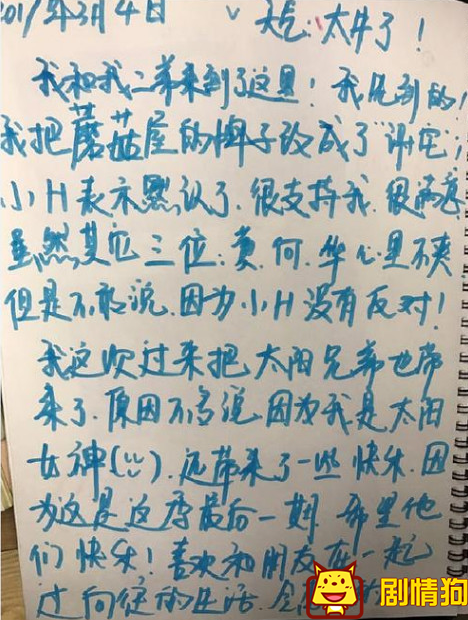 2017年3月4日 天气:太牛了!
我和我二弟来到了这里!我先到的!
我把蘑菇屋的牌子改成了"谢宅",
小H表示默认了.很支持我.很满意
虽然其它三位:黄.何.华心里不爽
但是不敢说.因为小H没有反对!
我这次过来把太阳兄弟也带
来了.原因不多说.因为我是太阳
女神(:).还带来了一些快乐.因
为这是这季最后一期.希望他
们快乐!喜欢和朋友在一起
过向往的生活.
剧情狗